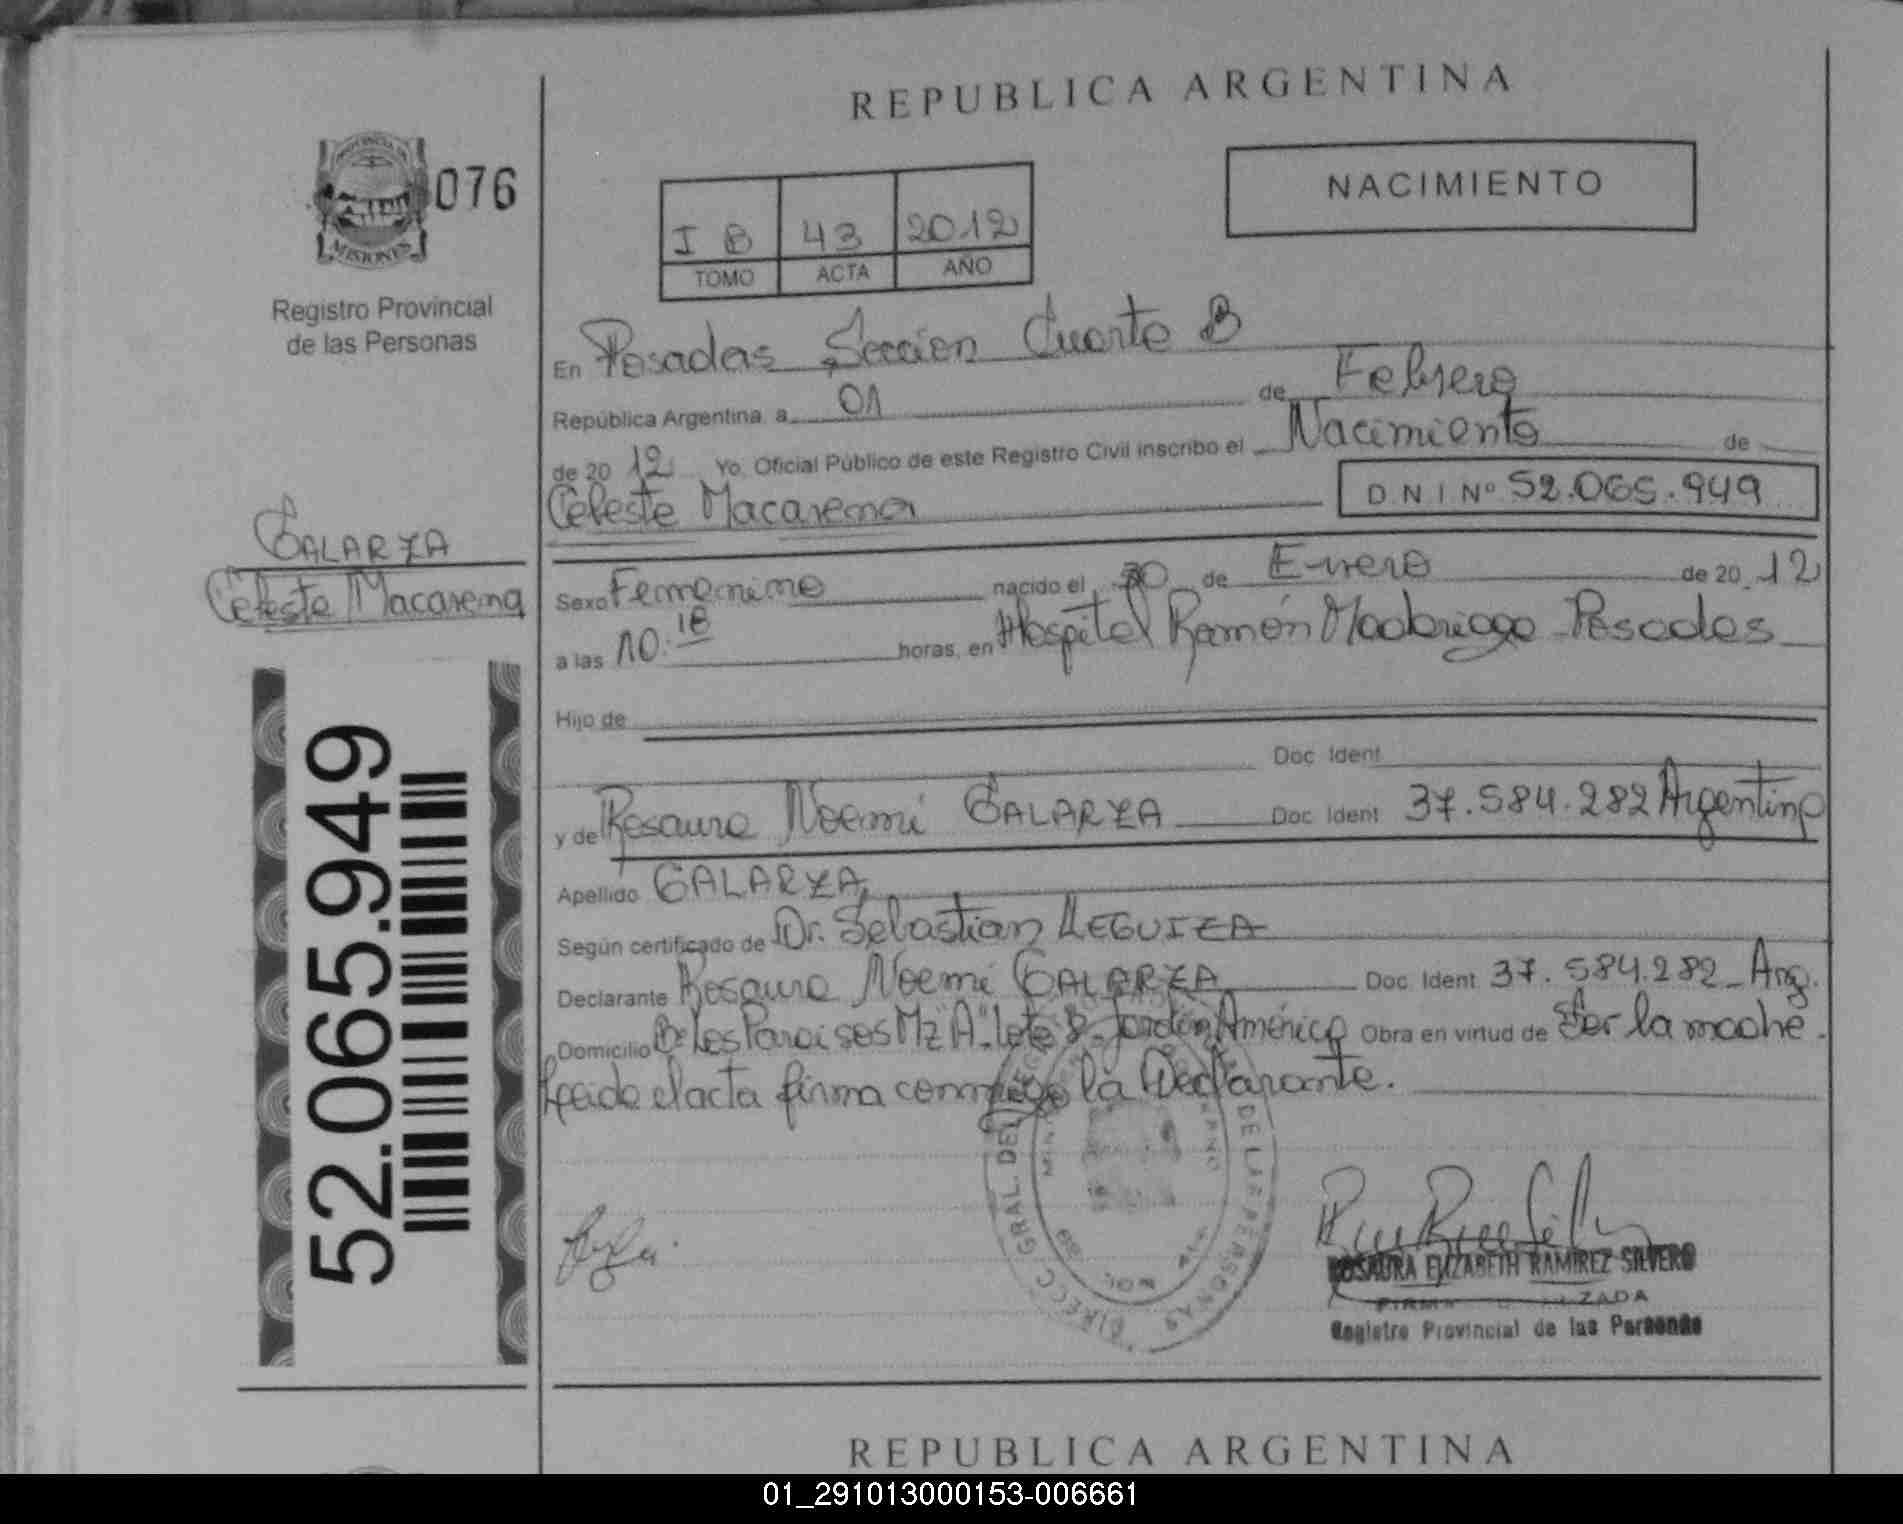 REPUBLICA ARGENTINA
PROVINCIA DE
MISIONES
076
Registro Provincial
de las Personas
I B 43 2012
TOMO ACTA AÑO
NACIMIENTO
En Posadas Sección Cuarta B
República Argentina, a 01 de Febrero
de 2012 Yo, Oficial Público de este Registro Civil inscribo el Nacimiento de
Celeste Macarena D N I Nº 52.065.949
GALARZA
Celeste Macarena
Sexo Femenino nacido el 30 de Enero de 20 12
a las 10.18 horas, en Hospital Ramón Madariaga Posadas
Hijo de
Doc. Ident.
y de Rosaura Noemí GALARZA Doc. Ident. 37.584.282 Argentina
Apellido GALARZA
Según certificado de Dr. Sebastian LEGUIZA
Declarante Rosaura Noemí GALARZA Doc. Ident. 37.584.282 Arg.
Domicilio Bº Los Paraisos Mz "A" Lote 8 Jardín América Obra en virtud de Ser la madre.
Leida el acta firma conmigo la Declarante.
52.065.949
DIRECC. GRAL. DEL DE LAS PERSONAS
ROSAURA ELIZABETH RAMIREZ SILVERO
Registro Provincial de las Personas
REPUBLICA ARGENTINA
01_291013000153-006661